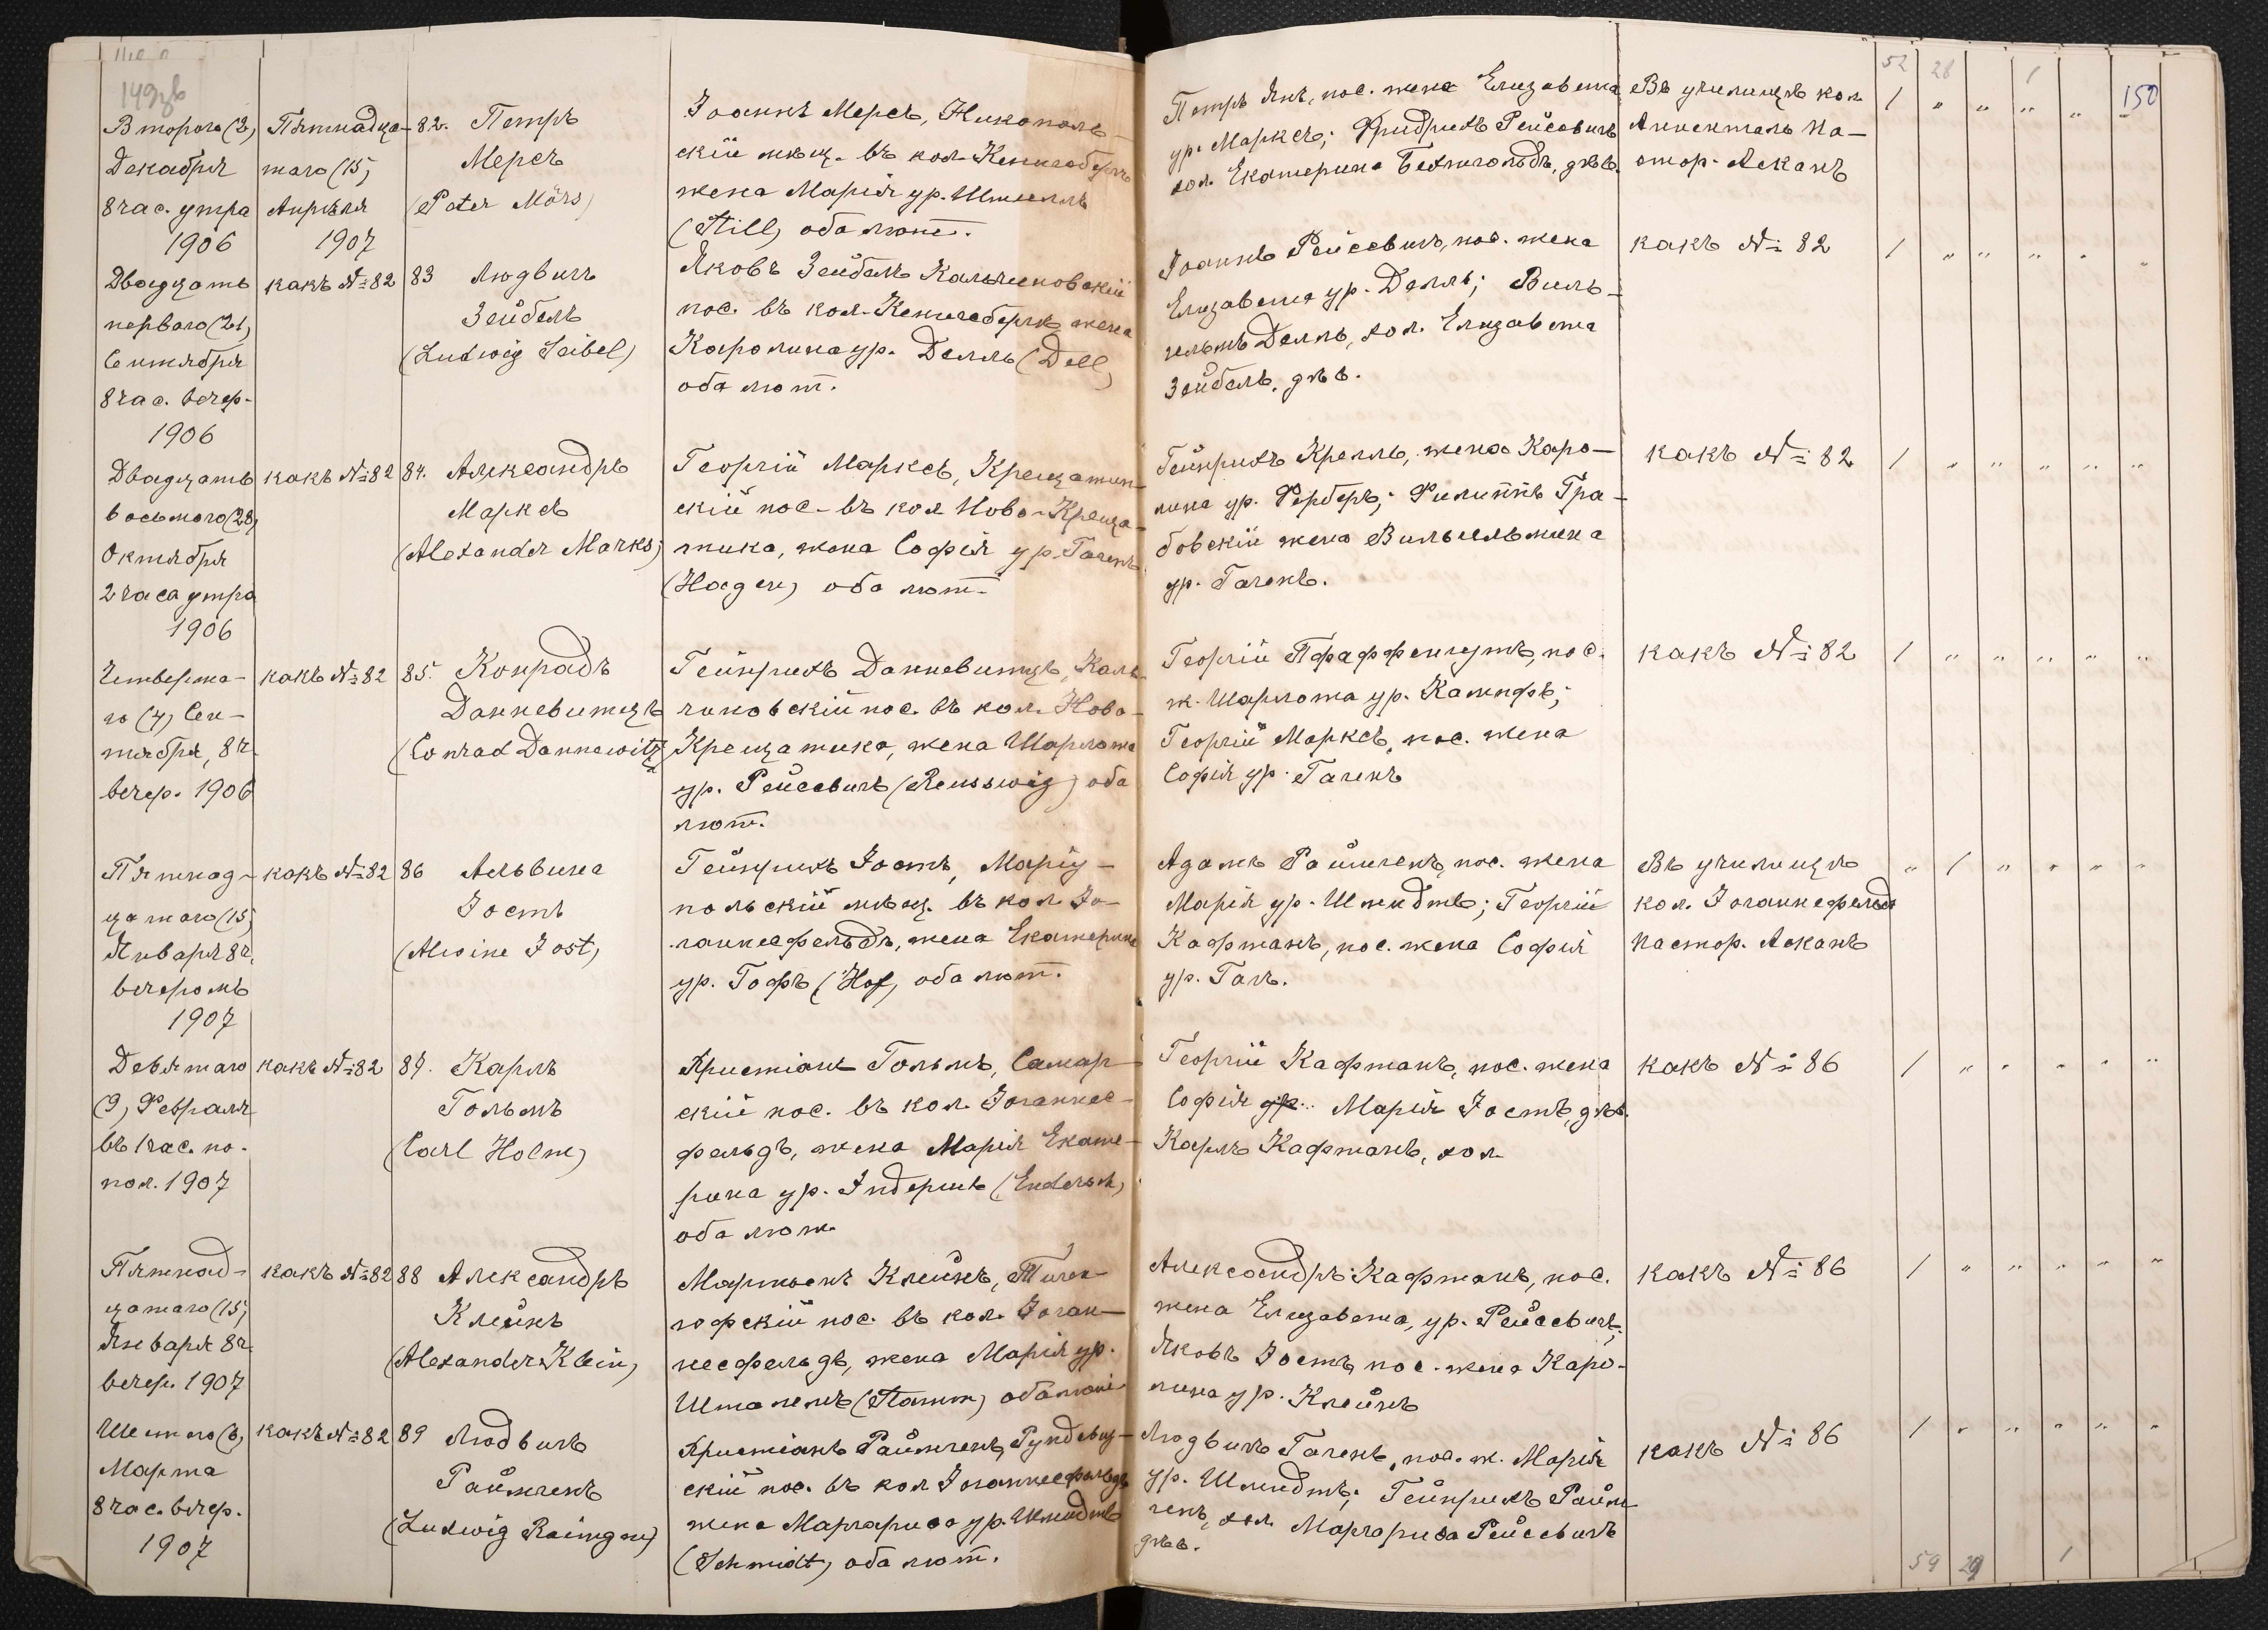 149зв
150
52 28 1
Второго (2)
Декабря
8 час. утра
1906
Пятнадца-
таго (15)
Апрѣля
1907
82. Петръ
Мерсъ
(Peter Mörs)
Іоаннъ Мерсъ, Никополь-
скій мѣщ. въ кол. Кенигсбергъ
жена Марія ур. Штилль
(Still) оба лют.
Петръ Янъ, пос. жена Елизавета
ур. Марксъ; Фридрихъ Рейсвихъ
хол. Екатерина Бехтгольдъ, дѣв.
Въ училищѣ кол.
Пастор. Асканъ
1 " " " " "
Двадцать
перваго (21)
Сентября
8 час. вечер.
1906
какъ № 82
83 Людвигъ
Зейбель
(Ludwig Seibel)
Яковъ Зейбель Кальчиновскій
пос. въ кол. Кенигсбергъ жена
Каролина ур. Делль (Dell)
оба лют.
Іоаннъ Рейсвихъ, пос. жена
Елизавета ур. Делль; Виль-
гельмъ Делль, хол. Елизавета
Зейбель, дѣв.
какъ № 82
1 " " " " "
Двадцать
восьмого (28)
Октября
2 часа утра
1906
какъ № 82
84. Александръ
Марксъ
(Alexander Marks)
Георгій Марксъ, Крещатин-
скій пос. въ кол. Ново-Креща-
тика, жена Софія ур. Гагенъ
(Hagen) оба лют.
Гейнрихъ Крелль, жена Каро-
лина ур. Ферберъ; Филиппъ Гра-
бовскій жена Вильгельмина
ур. Гагенъ.
какъ № 82
1 " " " " "
Четверта-
го (4) Сен-
тября, 8 ч.
вечер. 1906
какъ № 82
85. Конрадъ
Данневитцъ
(Conrad Dannewitz)
Гейнрихъ Данневитцъ, Каль-
чиновскій пос. въ кол. Ново-
Крещатика, жена Шарлота
ур. Рейсвихъ (Reusswig) оба
лют.
Георгій Пфаффенгутъ, пос.
ж. Шарлота ур. Кампфъ;
Георгій Марксъ, пос. жена
Софія ур. Гагенъ
какъ № 82
1 " " " " "
Пятнад-
цатаго (15)
Января 8 ч.
вечеромъ
1907
какъ № 82
86 Альвина
Іостъ
(Alwine Jost)
Гейнрихъ Іостъ, Маріу-
польскій мѣщ. въ кол. Іо-
ганнесфельдъ, жена Екатерина
ур. Гофъ (Hof) оба лют.
Адамъ Раймгенъ, пос. жена
Марія ур. Шмидтъ; Георгій
Кафтанъ, пос. жена Софія
ур. Галь.
Въ училищѣ
кол. Іоганнесфельдъ
Пастор. Асканъ
" 1 " " " "
Девятаго
(9) Февраля
въ 1 час. по-
пол. 1907
какъ № 82
87. Карлъ
Гольмъ
(Carl Holm)
Христіанъ Гольмъ, Самар-
скій пос. въ кол. Іоганнес-
фельдъ, жена Марія Екате-
рина ур. Індеришъ (Endersch)
оба лют.
Георгій Кафтанъ, пос. жена
Софія ур. Марія Іостъ, дѣв.
Карлъ Кафтанъ, хол.
какъ № 86
1 " " " " "
Пятнад-
цатаго (15)
Января 8 ч.
вечер. 1907
какъ № 82
88 Александръ
Клейнъ
(Alexander Klein)
Мартынъ Клейнъ, Тиген-
гофскій пос. въ кол. Іоган-
несфельдъ, жена Марія ур.
Штаммъ (Stamm) оба лют.
Александръ Кафтанъ, пос.
жена Елизавета, ур. Рейсвихъ;
Яковъ Іостъ, пос. жена Каро-
лина ур. Клейнъ
какъ № 86
1 " " " " "
Шестаго (6)
Марта
8 час. вечер.
1907
какъ № 82
89 Людвигъ
Раймгенъ
(Ludwig Raimgen)
Христіанъ Раймгенъ,
скій пос. въ кол. Іоганнесфельдъ
жена Маргарита ур. Шмидтъ
(Schmidt) оба лют.
Людвигъ Гагенъ, пос. ж. Марія
ур. Шмидтъ; Гейнрихъ Райм-
генъ, хол. Маргарита Рейсвихъ
дѣв.
какъ № 86
1 " " " " "
59 29 1